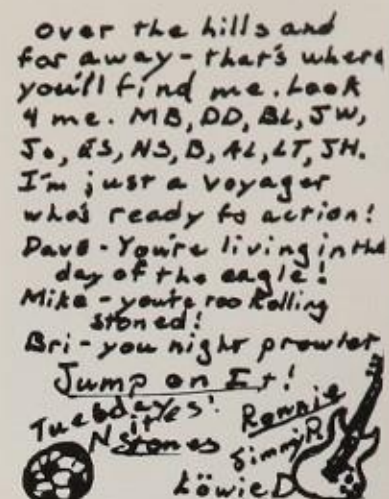 over the hills and
far away - that's where
you'll find me. Look
4 me. MB, DD, BL, JW,
Jo, ES, NS, B, AL, LT, JH.
I'm just a voyager
who's ready fo action!
Dave - You're living in the
day of the eagle!
Mike - you're too Rolling
stoned!
Bri - you night prowler
Jump on It!
Tuesdayes'
N it Stones
Ronnie
Jimmy R.
Löwie D